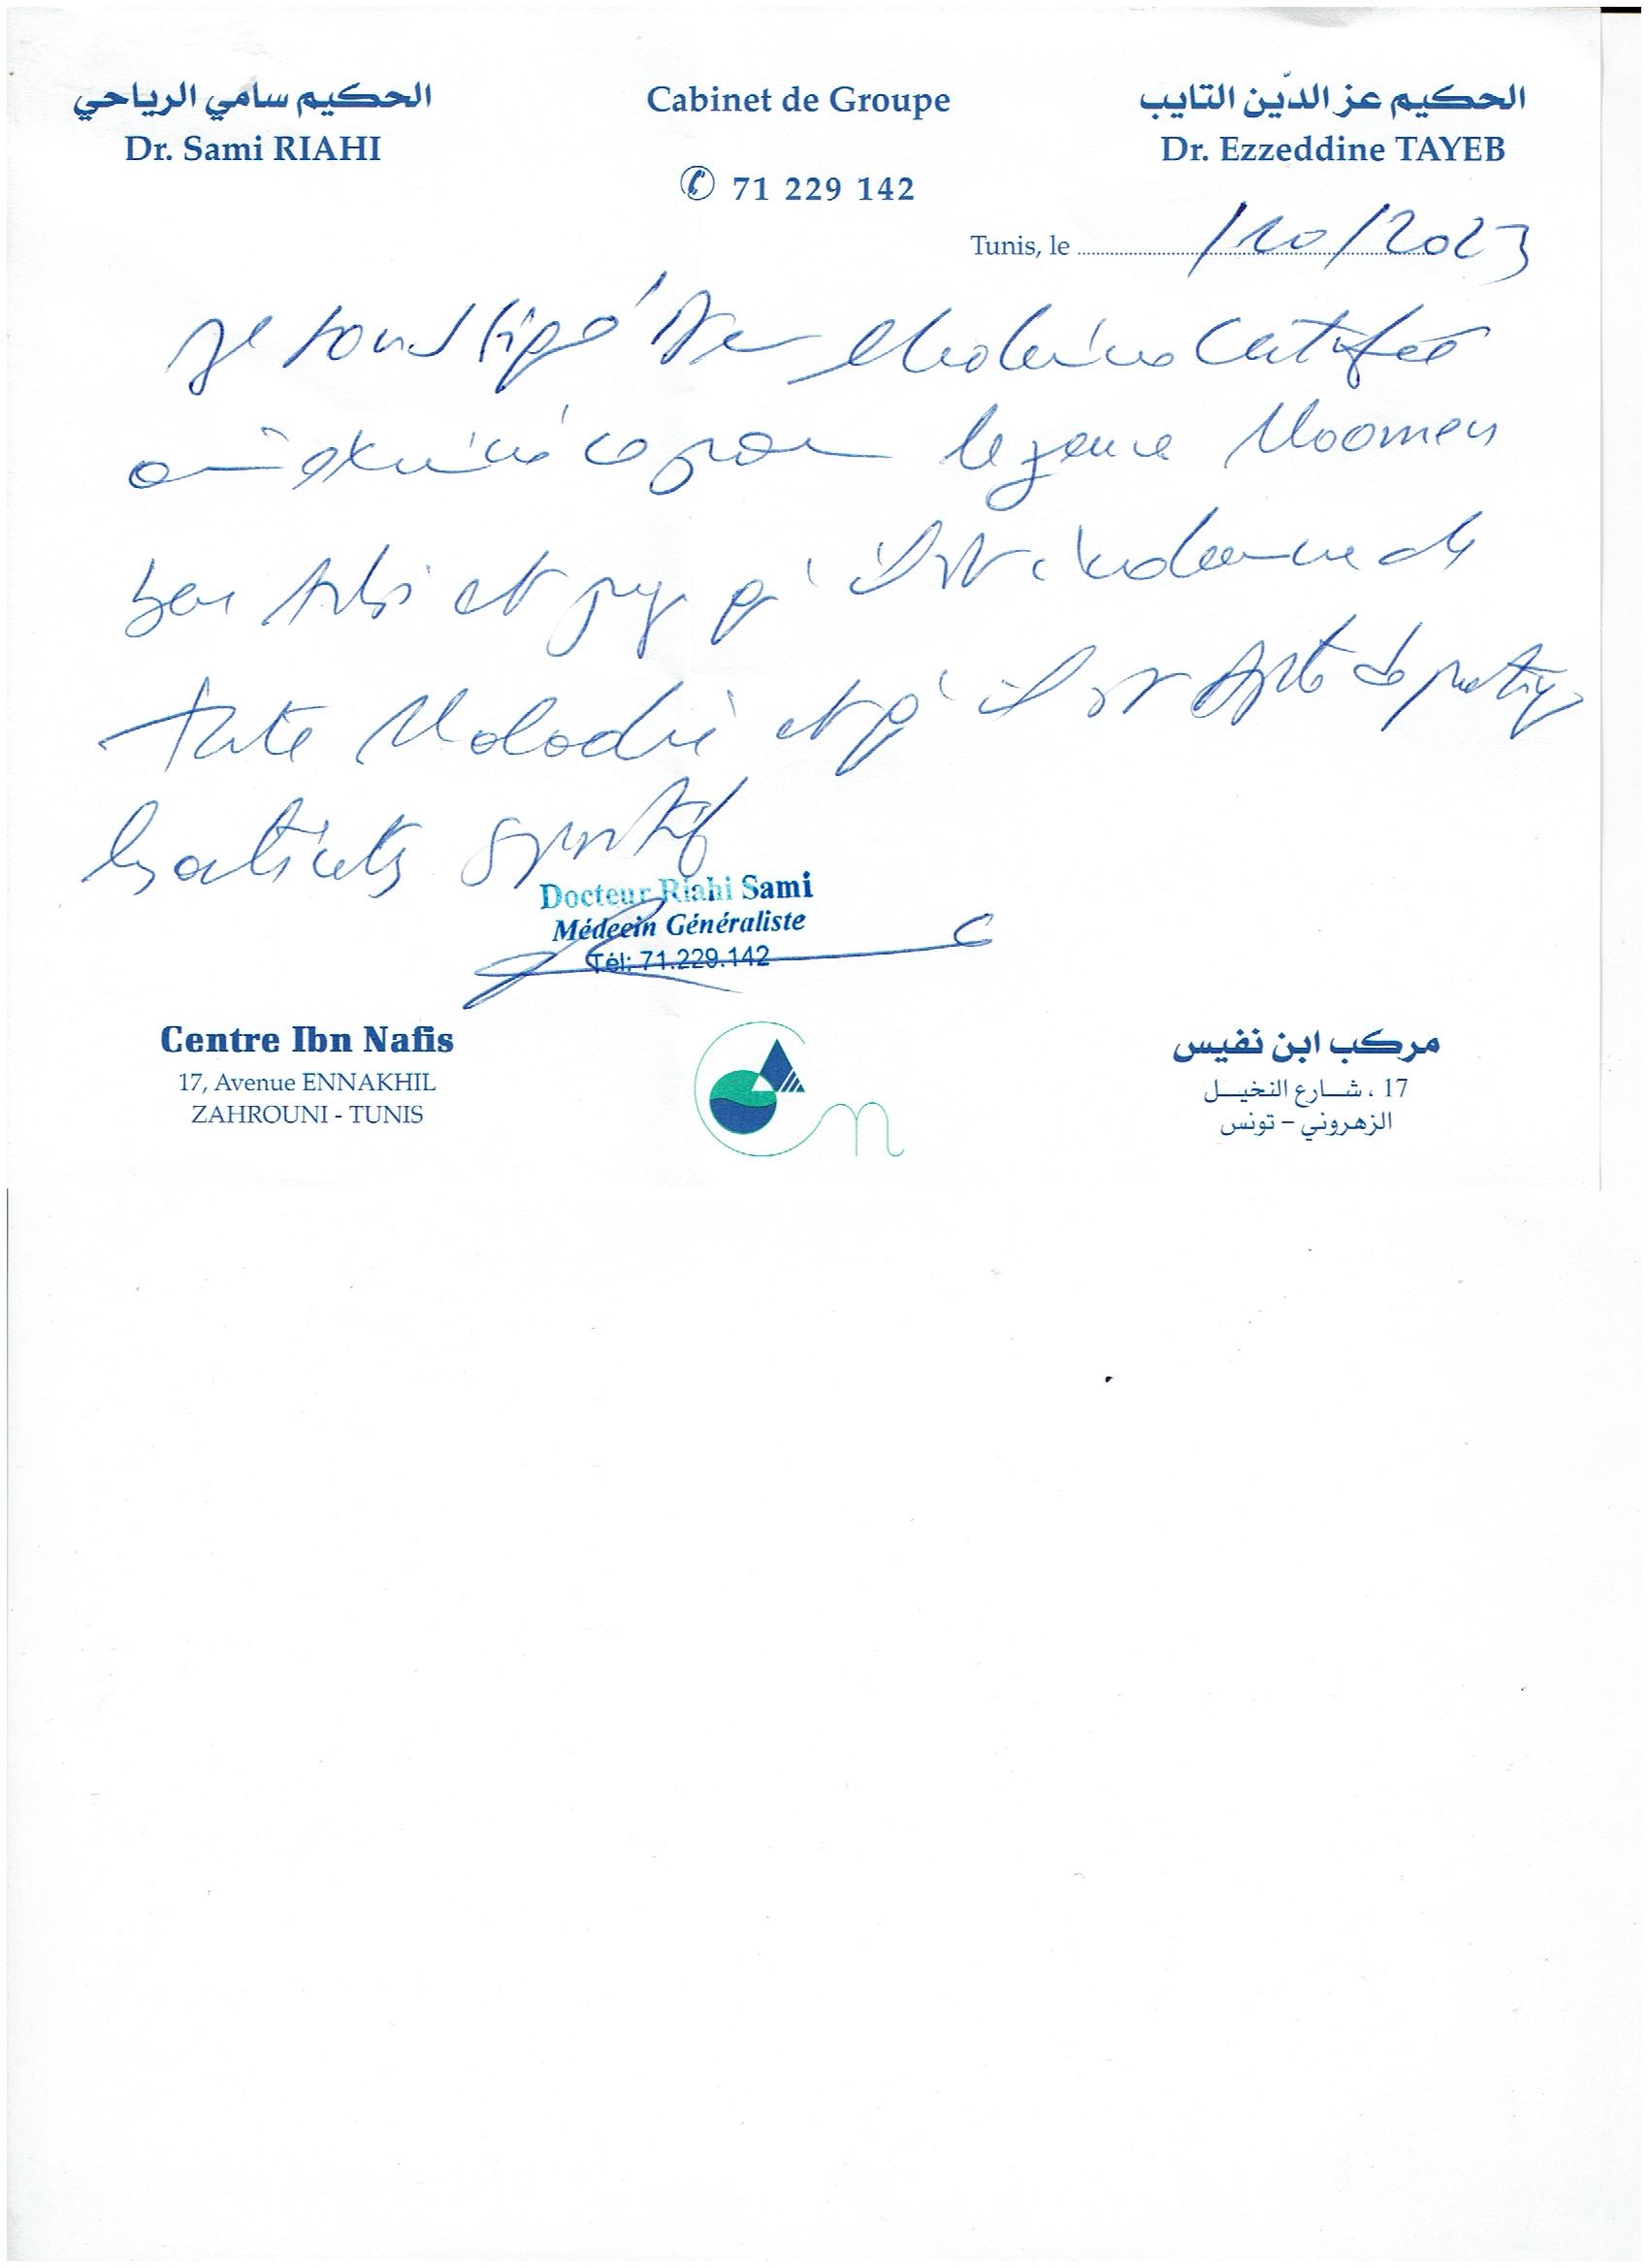 الحكيم سامي الرياحي
Dr. Sami RIAHI
Cabinet de Groupe
✆ 71 229 142
الحكيم عز الدّين التايب
Dr. Ezzeddine TAYEB
Tunis, le /10/2023
Je soussigné Dr Certifie
examiné ce jour le jeune Moomen
ben et qu'il est indemne de
toute Maladie et qu'il est Apte de pratiquer
les activités sportif
Docteur Riahi Sami
Médecin Généraliste
Tél: 71.229.142
Centre Ibn Nafis
17, Avenue ENNAKHIL
ZAHROUNI - TUNIS
مركب ابن نفيس
17 ، شارع النخيل
الزهروني - تونس